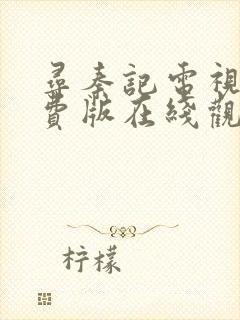 尋秦記電視
費版在綫觀
柠檬